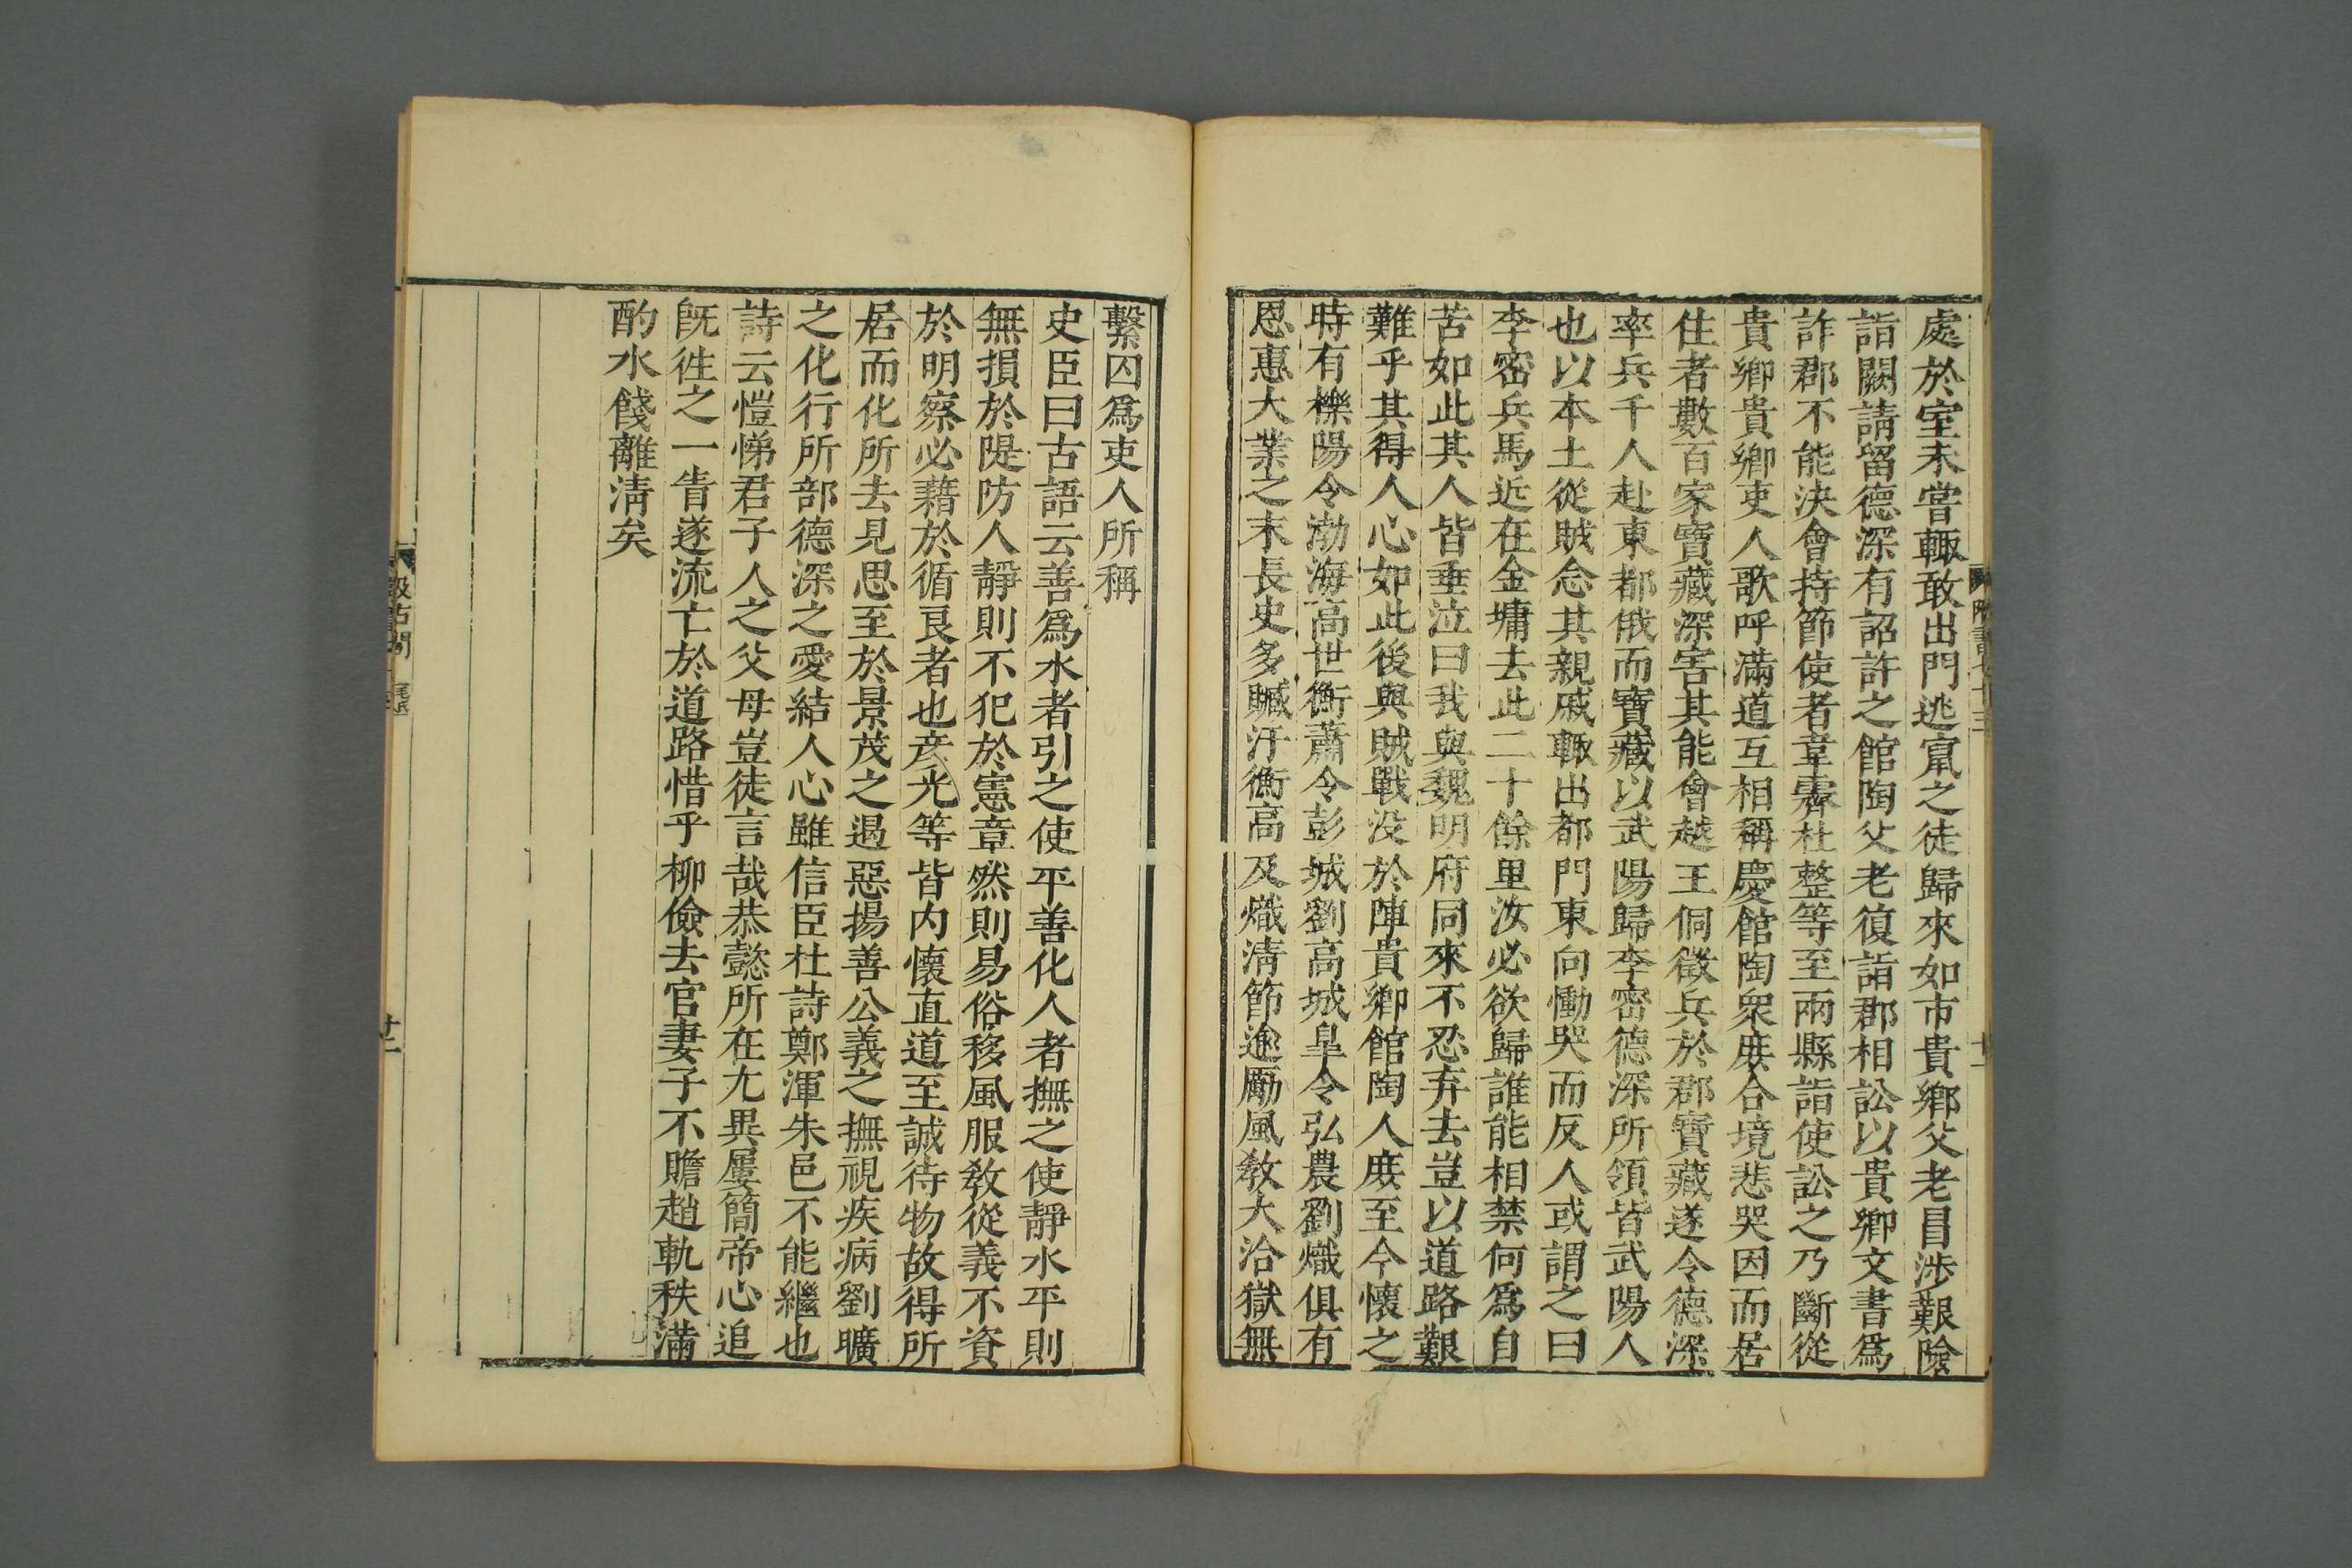 處於室未嘗輒敢出門逃竄之徒歸來如市貴鄉父老冒涉艱險
詣闕請留德深有詔許之館陶父老復詣郡相訟以貴鄉文書爲
詐郡不能決會持節使者韋霽杜整等至兩縣詣使訟之乃斷從
貴鄉貴鄉吏人歌呼滿道互相稱慶館陶衆庶合境悲哭因而居
住者數百家寶藏深害其能會越王侗徵兵於郡寶藏遂令德深
率兵千人赴東都俄而寶藏以武陽歸李密德深所領皆武陽人
也以本土從賊念其親戚輒出都門東向慟哭而反人或謂之曰
李密兵馬近在金墉去此二十餘里汝必欲歸誰能相禁何爲自
苦如此其人皆垂泣曰我與魏明府同來不忍弃去豈以道路艱
難乎其得人心如此後與賊戰没於陣貴鄉館陶人庶至今懷之
時有櫟陽令渤海高世衡蕭令彭城劉高城皐令弘農劉熾俱有
恩惠大業之末長史多贓汙衡高及熾淸節逾勵風敎大洽獄無
繫囚爲吏人所稱
史臣曰古語云善爲水者引之使平善化人者撫之使靜水平則
無損於隄防人靜則不犯於憲章然則易俗移風服敎從義不資
於明察必藉於循良者也彦光等皆内懷直道至誠待物故得所
居而化所去見思至於景茂之遏惡揚善公義之撫視疾病劉曠
之化行所部德深之愛結人心雖信臣杜詩鄭渾朱邑不能繼也
詩云愷悌君子人之父母豈徒言哉恭懿所在尤異屢簡帝心追
旣徃之一眚遂流亡於道路惜乎柳儉去官妻子不贍趙軌秩滿
酌水餞離淸矣
隋書七十三
十一
汲古閣